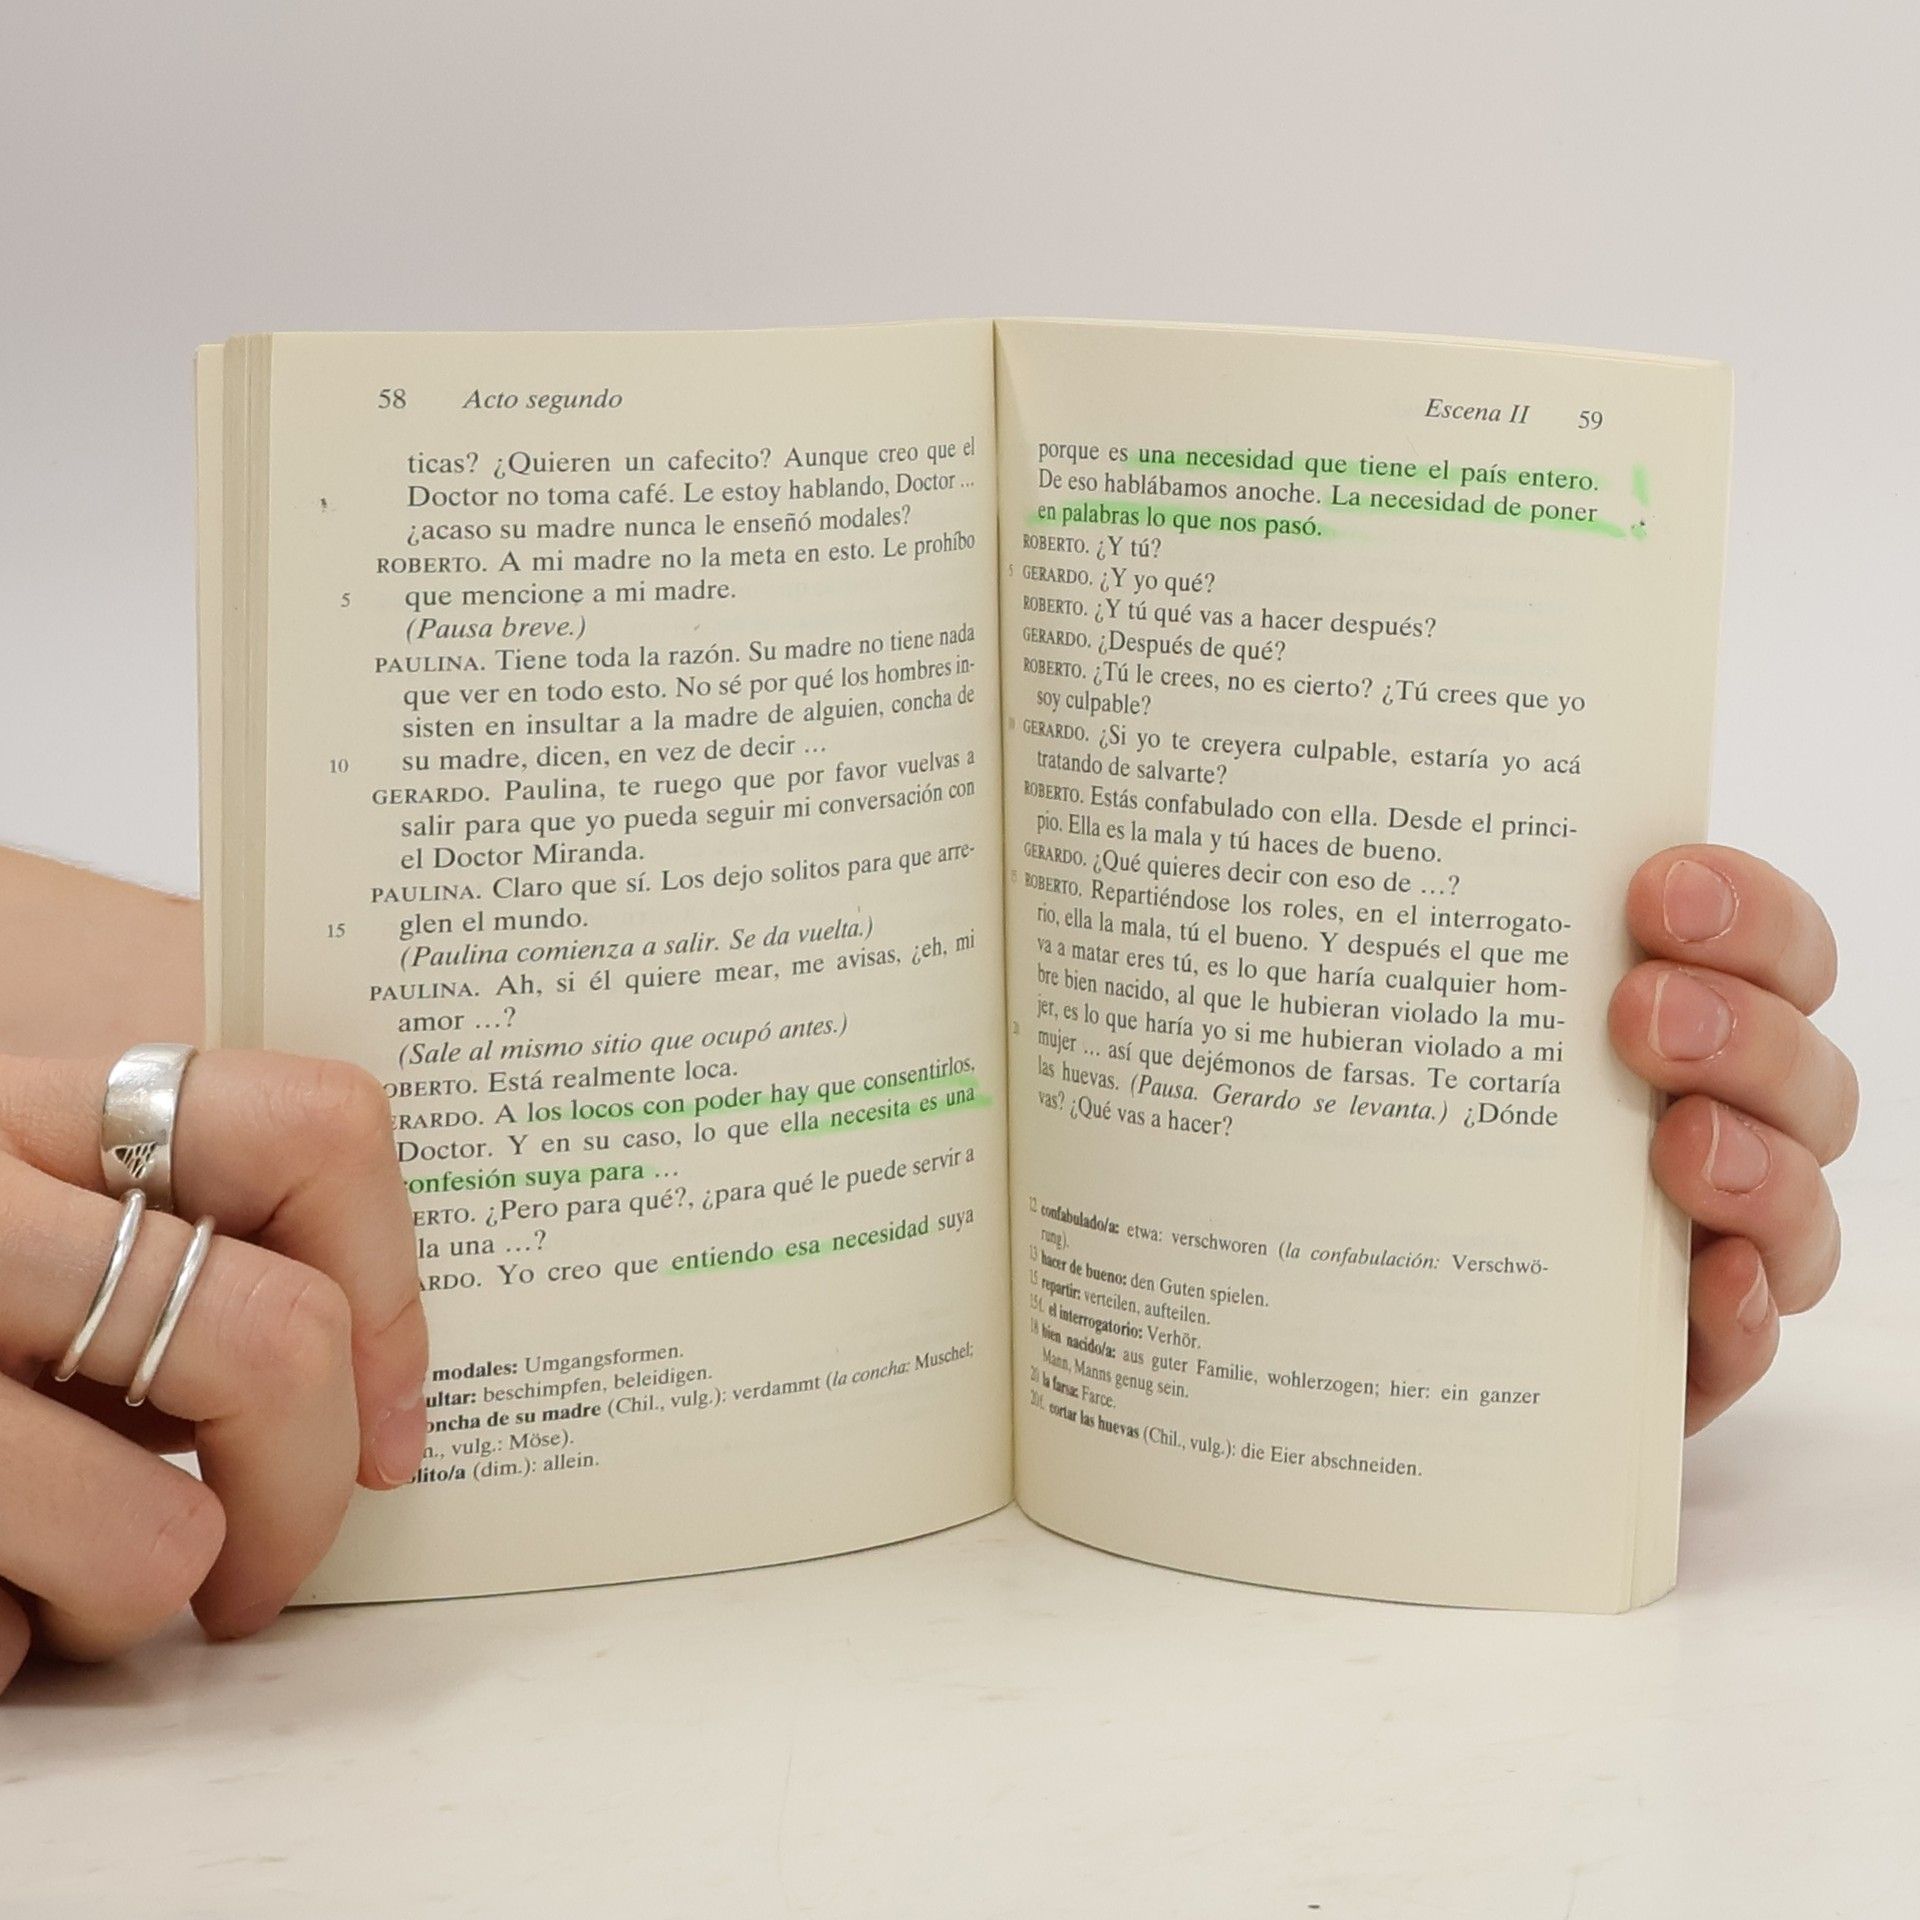 58 Acto segundo
ticas? ¿Quieren un cafecito? Aunque creo que el
Doctor no toma café. Le estoy hablando, Doctor ...
¿acaso su madre nunca le enseñó modales?
ROBERTO. A mi madre no la meta en esto. Le prohíbo
5 que mencione a mi madre.
(Pausa breve.)
PAULINA. Tiene toda la razón. Su madre no tiene nada
que ver en todo esto. No sé por qué los hombres in-
sisten en insultar a la madre de alguien, concha de
10 su madre, dicen, en vez de decir ...
GERARDO. Paulina, te ruego que por favor vuelvas a
salir para que yo pueda seguir mi conversación con
el Doctor Miranda.
PAULINA. Claro que sí. Los dejo solitos para que arre-
15 glen el mundo.
(Paulina comienza a salir. Se da vuelta.)
PAULINA. Ah, si él quiere mear, me avisas, ¿eh, mi
amor ...?
(Sale al mismo sitio que ocupó antes.)
OBERTO. Está realmente loca.
ERARDO. A los locos con poder hay que consentirlos,
Doctor. Y en su caso, lo que ella necesita es una
onfesión suya para ...
ERTO. ¿Pero para qué?, ¿para qué le puede servir a
la una ...?
ARDO. Yo creo que entiendo esa necesidad suya
modales: Umgangsformen.
ultar: beschimpfen, beleidigen.
oncha de su madre (Chil., vulg.): verdammt (la concha: Muschel;
n., vulg.: Möse).
lito/a (dim.): allein.
Escena II 59
porque es una necesidad que tiene el país entero.
De eso hablábamos anoche. La necesidad de poner
en palabras lo que nos pasó.
ROBERTO. ¿Y tú?
5 GERARDO. ¿Y yo qué?
ROBERTO. ¿Y tú qué vas a hacer después?
GERARDO. ¿Después de qué?
ROBERTO. ¿Tú le crees, no es cierto? ¿Tú crees que yo
soy culpable?
10 GERARDO. ¿Si yo te creyera culpable, estaría yo acá
tratando de salvarte?
ROBERTO. Estás confabulado con ella. Desde el princi-
pio. Ella es la mala y tú haces de bueno.
GERARDO. ¿Qué quieres decir con eso de ...?
15 ROBERTO. Repartiéndose los roles, en el interrogato-
rio, ella la mala, tú el bueno. Y después el que me
va a matar eres tú, es lo que haría cualquier hom-
bre bien nacido, al que le hubieran violado la mu-
jer, es lo que haría yo si me hubieran violado a mi
20 mujer ... así que dejémonos de farsas. Te cortaría
las huevas. (Pausa. Gerardo se levanta.) ¿Dónde
vas? ¿Qué vas a hacer?
12 confabulado/a: etwa: verschworen (la confabulación: Verschwö-
rung).
13 hacer de bueno: den Guten spielen.
15 repartir: verteilen, aufteilen.
15f. el interrogatorio: Verhör.
18 bien nacido/a: aus guter Familie, wohlerzogen; hier: ein ganzer
Mann, Manns genug sein.
20 la farsa: Farce.
20f. cortar las huevas (Chil., vulg.): die Eier abschneiden.